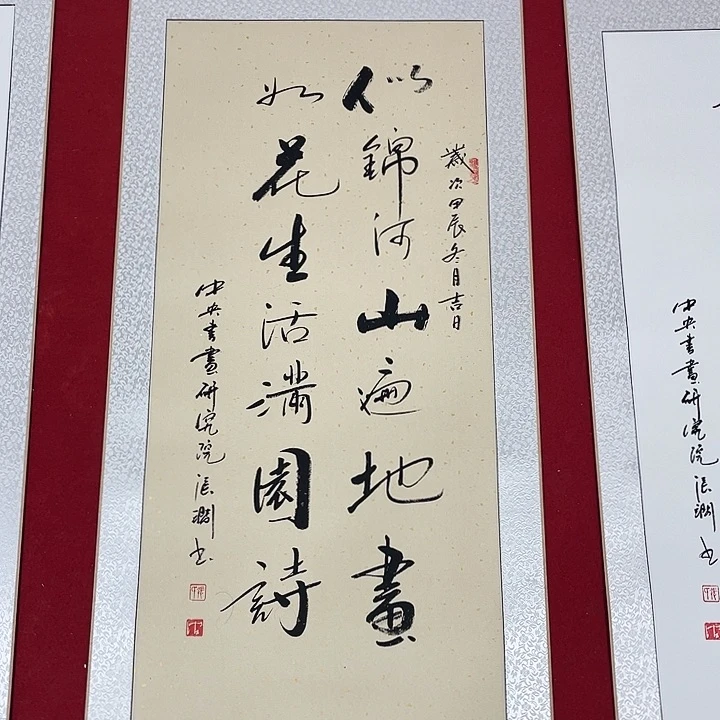 歲次甲辰冬月吉日
似錦河山遍地畫
如花生活滿園詩
中央書畫研究院張潤书
中央書畫研究院張潤书